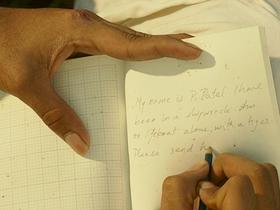 My name is P. Patel I have
been in a shipwreck. I am
on lifeboat alone, with a tiger.
Please send h